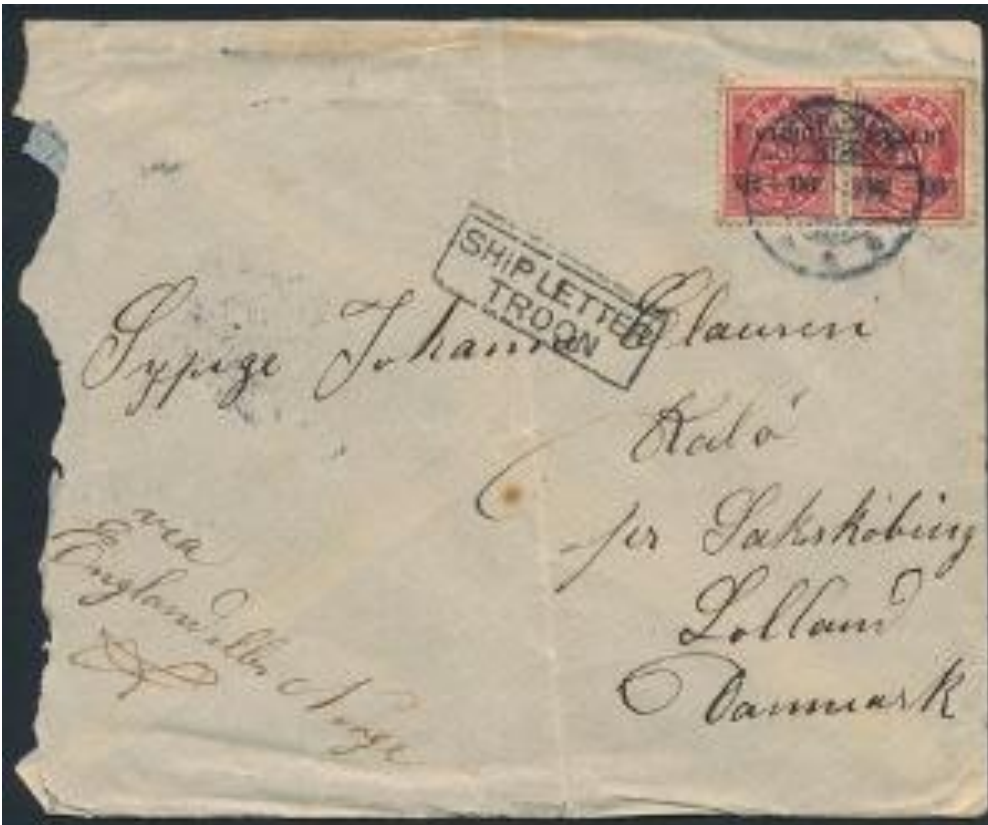 SHIP LETTER
TROON
Sypige Johanne Clausen
Kalø
pr Sakskøbing
Lolland
Danmark
via
England eller Norge